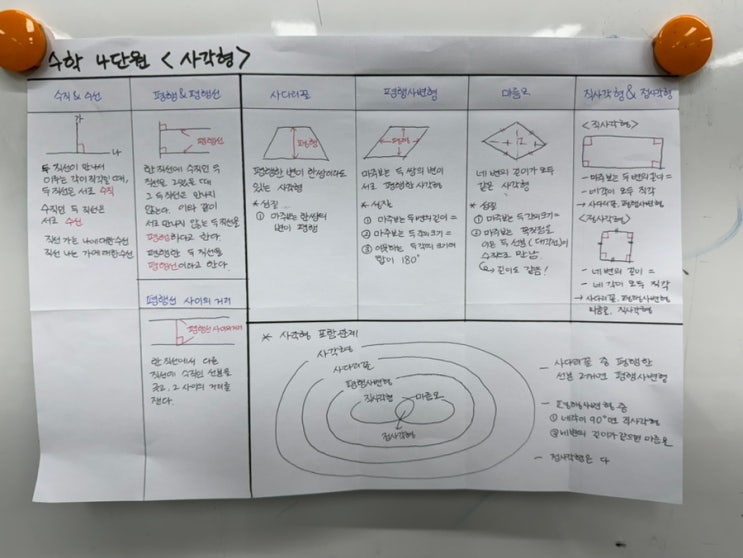 수학 4단원 <사각형>
수직 & 수선
가
나
두 직선이 만나서
이루는 각이 직각일 때,
두 직선은 서로 수직
수직인 두 직선은
서로 수선
직선 가는 나에 대한 수선
직선 나는 가에 대한 수선
평행 & 평행선
평행선
한 직선에 수직인 두
직선을 그었을 때
그 두 직선은 만나지
않는다. 이와 같이
서로 만나지 않는 두 직선을
평행하다고 한다.
평행한 두 직선을
평행선이라고 한다.
평행선 사이의 거리
평행선 사이의 거리
한 직선에서 다른
직선에 수직인 선분을
긋고, 그 사이의 거리를
잰다.
사다리꼴
평행
평행한 변이 한 쌍이라도
있는 사각형
* 성질
① 마주보는 한 쌍의
변이 평행
평행사변형
평행
마주보는 두 쌍의 변이
서로 평행한 사각형
* 성질
① 마주보는 두 변의 길이 =
② 마주보는 두 각의 크기 =
③ 이웃하는 두 각의 크기의
합이 180°
마름모
네 변의 길이가 모두
같은 사각형
* 성질
① 마주보는 두 각의 크기 =
② 마주보는 꼭짓점을
이은 두 선분(대각선)이
수직으로 만남
→ 길이도 같음!
직사각형 & 정사각형
<직사각형>
- 마주보는 두 변의 길이 =
- 네 각이 모두 직각
→ 사다리꼴, 평행사변형
<정사각형>
- 네 변의 길이 =
- 네 각이 모두 직각
→ 사다리꼴, 평행사변형
마름모, 직사각형
* 사각형 포함관계
사각형
사다리꼴
평행사변형
직사각형
마름모
정사각형
- 사다리꼴 중 평행한
선분 2개면 평행사변형
- 평행사변형 중
① 네 각이 90°면 직사각형
② 네 변의 길이가 같으면 마름모
- 정사각형은 다